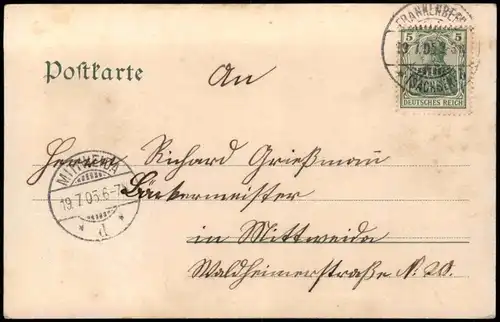 FRANKENBERG
19.7.05.
(SACHSEN)
5 5
DEUTSCHES REICH
Postkarte
An
Herrn Richard Grießmau
Bäckermeister
MITTWEIDA
19.7.05.6-7
in Mittweida
Waldheimerstraße N.